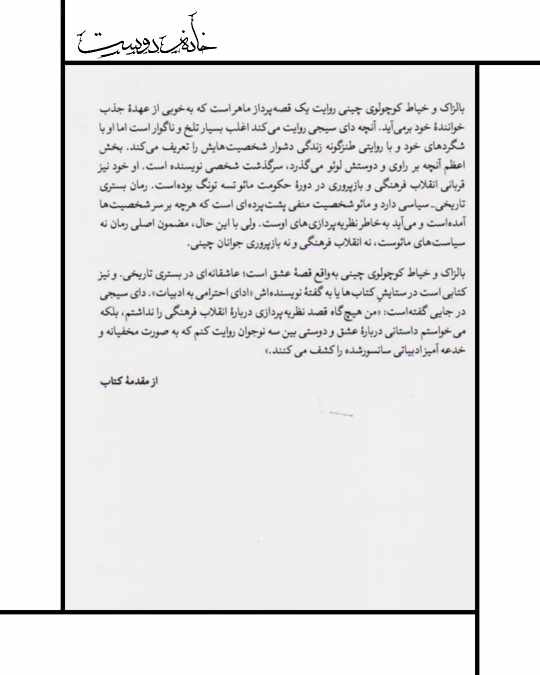 خانه دوست
بالزاک و خیاط کوچولوی چینی روایت یک قصه‌پرداز ماهر است که به‌خوبی از عهدهٔ جذب
خوانندهٔ خود برمی‌آید. آنچه دای سیجی روایت می‌کند اغلب بسیار تلخ و ناگوار است اما او با
شگردهای خود و با روایتی طنزگونه زندگی دشوار شخصیت‌هایش را تعریف می‌کند. بخش
اعظم آنچه بر راوی و دوستش لوئو می‌گذرد، سرگذشت شخصی نویسنده است. او خود نیز
قربانی انقلاب فرهنگی و بازپروری در دورهٔ حکومت مائو تسه تونگ بوده‌است. رمان بستری
تاریخی_سیاسی دارد و مائو شخصیت منفی پشت‌پرده‌ای است که هرچه بر سر شخصیت‌ها
آمده‌است و می‌آید به‌خاطر نظریه‌پردازی‌های اوست. ولی با این حال، مضمون اصلی رمان نه
سیاست‌های مائوست، نه انقلاب فرهنگی و نه بازپروری جوانان چینی.
بالزاک و خیاط کوچولوی چینی به‌واقع قصهٔ عشق است؛ عاشقانه‌ای در بستری تاریخی. و نیز
کتابی است در ستایش کتاب‌ها یا به گفتهٔ نویسنده‌اش «ادای احترامی به ادبیات». دای سیجی
در جایی گفته‌است: «من هیچ‌گاه قصد نظریه‌پردازی دربارهٔ انقلاب فرهنگی را نداشتم، بلکه
می‌خواستم داستانی دربارهٔ عشق و دوستی بین سه نوجوان روایت کنم که به صورت مخفیانه و
خدعه آمیز ادبیاتی سانسورشده را کشف می کنند.»
از مقدمهٔ کتاب